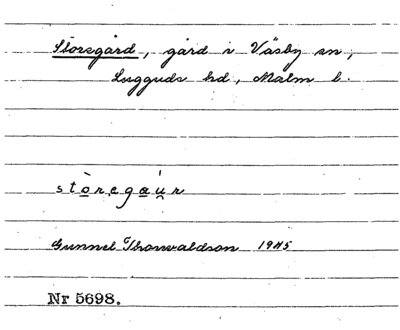 Storegård, gård i Väsby sn,
Luggude hd, Malm l.
stòregæu̯r
Gunnel Thorwaldson 1945
Nr 5698.